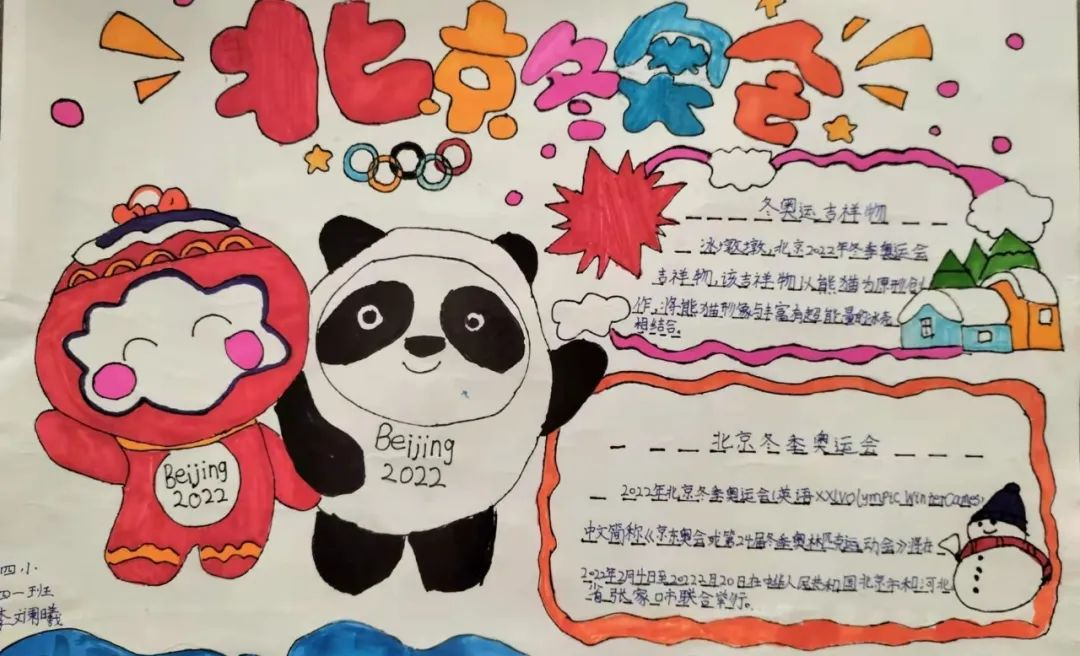 北京冬奥会
冬奥运吉祥物
冰墩墩,北京2022年冬季奥运会
吉祥物,该吉祥物以熊猫为原型创
作,将熊猫形像与丰富有超能量的冰壳
相结合。
Beijing
2022
Beijing
2022
北京冬季奥运会
2022年北京冬季奥运会(英语XXIVOlympic Winter Games,
中文简称《京东奥会或第24届冬季奥林匹克运动会》逐在
2022年2月4日至2022 2月20日在中华人民共和国北京市和河北
省张家口市联合举行。
四小
四一班